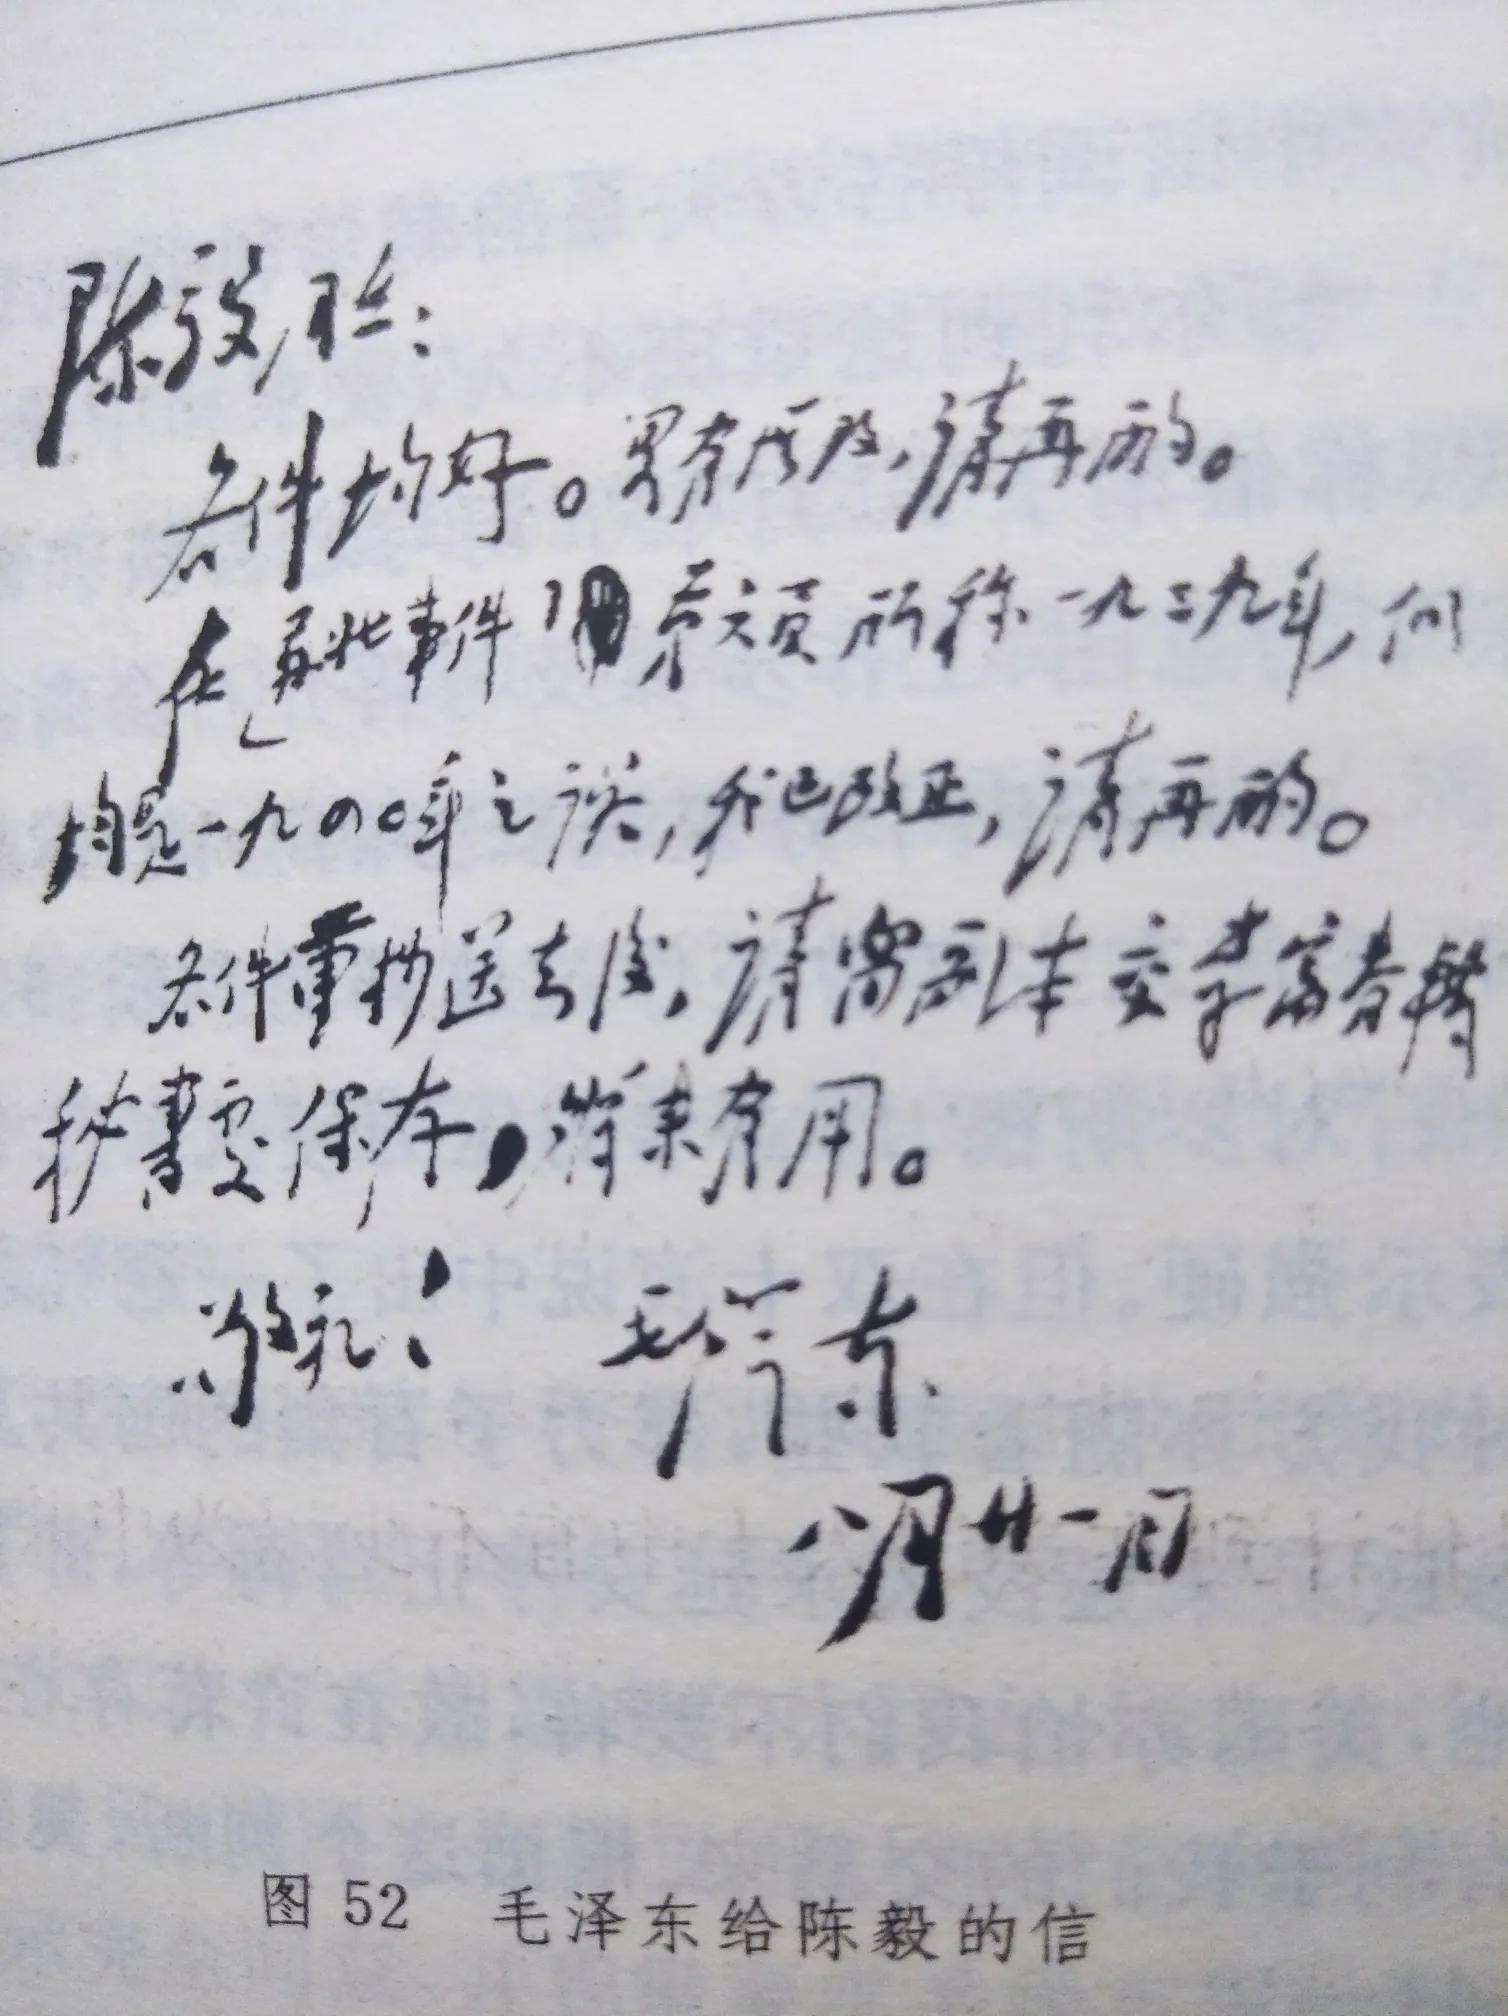 陈毅兄:
各件均好。略有修改,请再酌。
在「苏北事件」中 来文有所称一九三九年,似
均是一九四〇年之误,我已改正,请再酌。
各件重抄送去后,请留副本交李富春转
秘书处保存,将来有用。
敬礼! 毛泽东
八月廿一日
图 52 毛泽东给陈毅的信